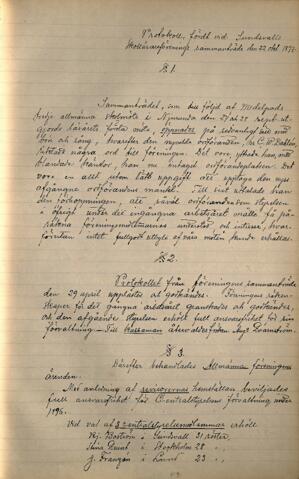 Protokoll, fördt vid Sundsvalls
Skollärareförenings sammanträde den 22 okt. 1897.
§ 1.
Sammanträdet, som blef följd af Medelpads
tredje allmänna skolmöte i Njurunda den 27 at 28 sept. ut-
gjorde läsårets första möte, öppnades på sedvanligt sätt med
bön och sång, hvarefter den nyvalde ordföranden, hr C. W. Dahlén,
yttrade några ord till föreningen. Det vore, yttrade han, med
blandade känslor, han nu intagit ordförandeplatsen. Det
vore en allt utom lätt uppgift att upptaga den nyss
afgångne ordförandens mantel. Till sist uttalade han
den förhoppningen, att såväl ordföranden som styrelsen
i öfrigt under det ingångna arbetsåret måtte få på-
räkna föreningsmedlemmarnes understöd och intresse, hvar-
förutan intet fullgodt utbyte af våra möten kunde erhållas.
§ 2.
Protokollet från föreningens sammanträde
den 29 april upplästes och godkändes. Föreningens räken-
skaper för det gångna arbetsåret granskades och godkändes,
och den afgående styrelsen erhöll full ansvarsfrihet för sin
förvaltning. Till kassaman återvaldes fröken
§ 3.
Därefter behandlades Allmänna föreningens
ärenden.
Med anledning af revisorernas hemställan beviljades
full ansvarsfrihet för Centralstyrelsens förvaltning under
1896.
Vid val af 3 centralstyrelsemedlemmar erhöll
Hj. Boström i Sundsvall 31 röster,
i Stockholm 28 "
J. Franzén i Lund 23 "